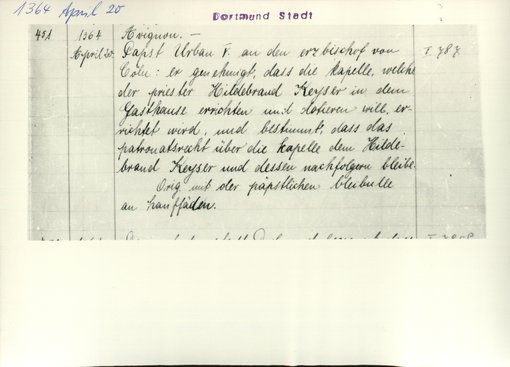 1364 April 20
Dortmund Stadt
451 1364 Avignon. —
April 20. Papst Urban V. an den erzbischof von I 787
Cöln: er genehmigt, dass die kapelle, welche
der priester Hildebrand Keyser in dem
Gasthause errichten und dotieren will, er-
richtet wird, und bestimmt, dass das
patronatsrecht über die kapelle dem Hilde-
brand Keyser und dessen nachfolgern bleibe.
Orig. mit der päpstlichen bleibulle
an hanffäden.